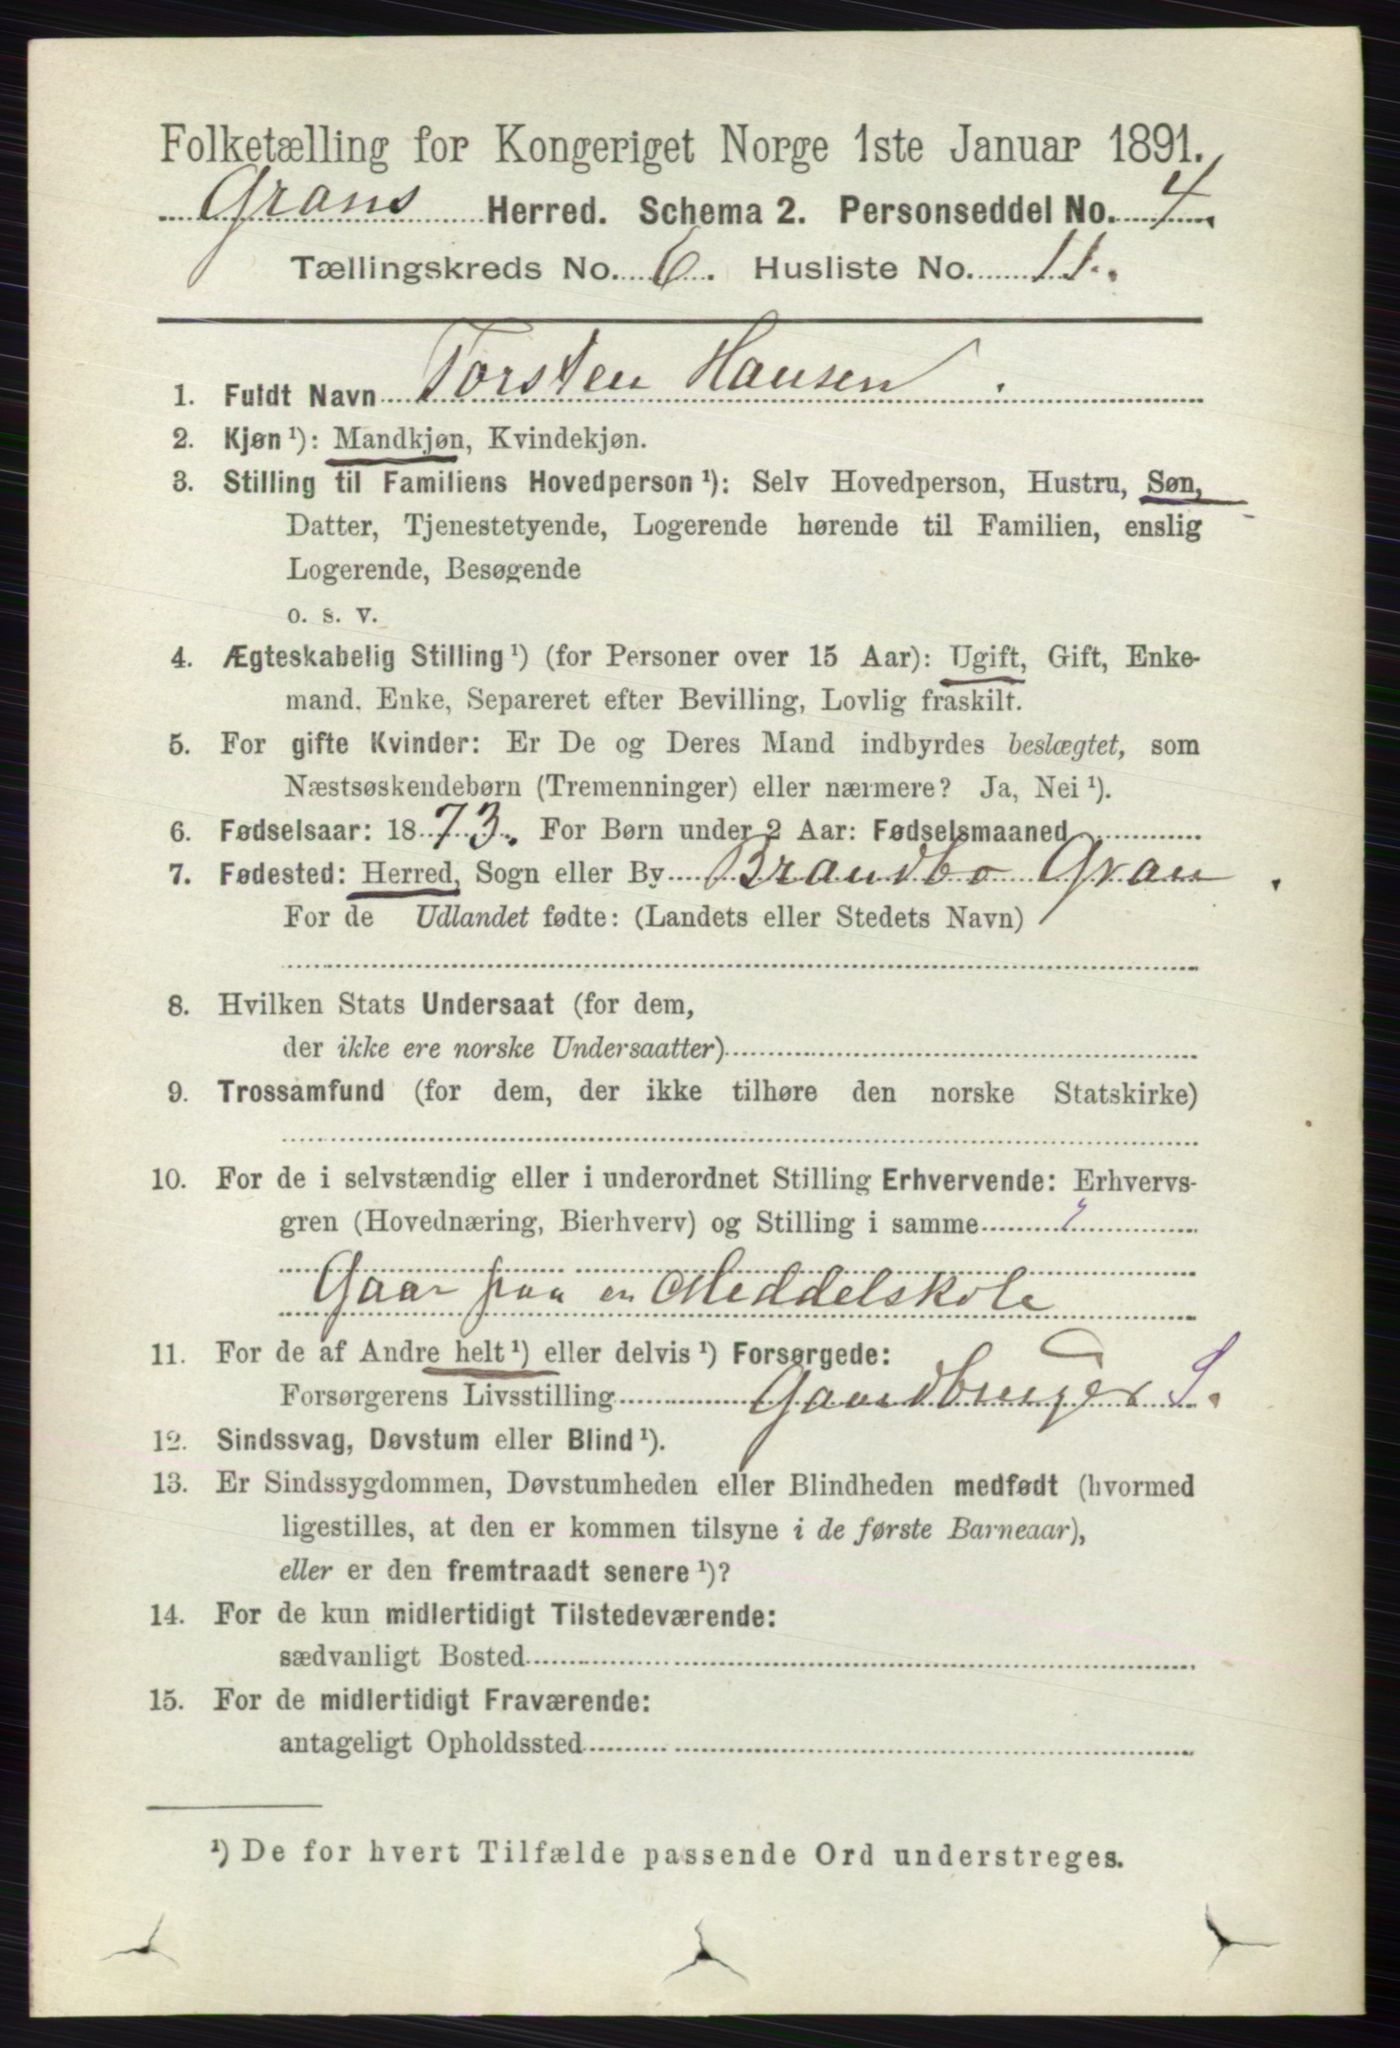 Folketælling for Kongeriget Norge 1ste Januar 1891.
Grans Herred. Schema 2. Personseddel No. 4.
Tællingskreds No. 6. Husliste No. 11.
1. Fuldt Navn Torsten Hansen.
2. Kjøn ¹): Mandkjøn, Kvindekjøn.
3. Stilling til Familiens Hovedperson ¹): Selv Hovedperson, Hustru, Søn,
Datter, Tjenestetyende, Logerende hørende til Familien, enslig
Logerende, Besøgende
o. s. v.
4. Ægteskabelig Stilling ¹) (for Personer over 15 Aar): Ugift, Gift, Enke-
mand, Enke, Separeret efter Bevilling, Lovlig fraskilt.
5. For gifte Kvinder: Er De og Deres Mand indbyrdes beslægtet, som
Næstsøskendebørn (Tremenninger) eller nærmere? Ja, Nei ¹).
6. Fødselsaar: 1873. For Børn under 2 Aar: Fødselsmaaned
7. Fødested: Herred, Sogn eller By Brandbo Gran.
For de Udlandet fødte: (Landets eller Stedets Navn)
8. Hvilken Stats Undersaat (for dem,
der ikke ere norske Undersaatter)
9. Trossamfund (for dem, der ikke tilhøre den norske Statskirke)
10. For de i selvstændig eller i underordnet Stilling Erhvervende: Erhvervs-
gren (Hovednæring, Bierhverv) og Stilling i samme
Gaar paa en Meddelskole
11. For de af Andre helt ¹) eller delvis ¹) Forsørgede:
Forsørgerens Livsstilling Gaardbruger S.
12. Sindssvag, Døvstum eller Blind ¹).
13. Er Sindssygdommen, Døvstumheden eller Blindheden medfødt (hvormed
ligestilles, at den er kommen tilsyne i de første Barneaar),
eller er den fremtraadt senere ¹)?
14. For de kun midlertidigt Tilstedeværende:
sædvanligt Bosted
15. For de midlertidigt Fraværende:
antageligt Opholdssted
¹) De for hvert Tilfælde passende Ord understreges.